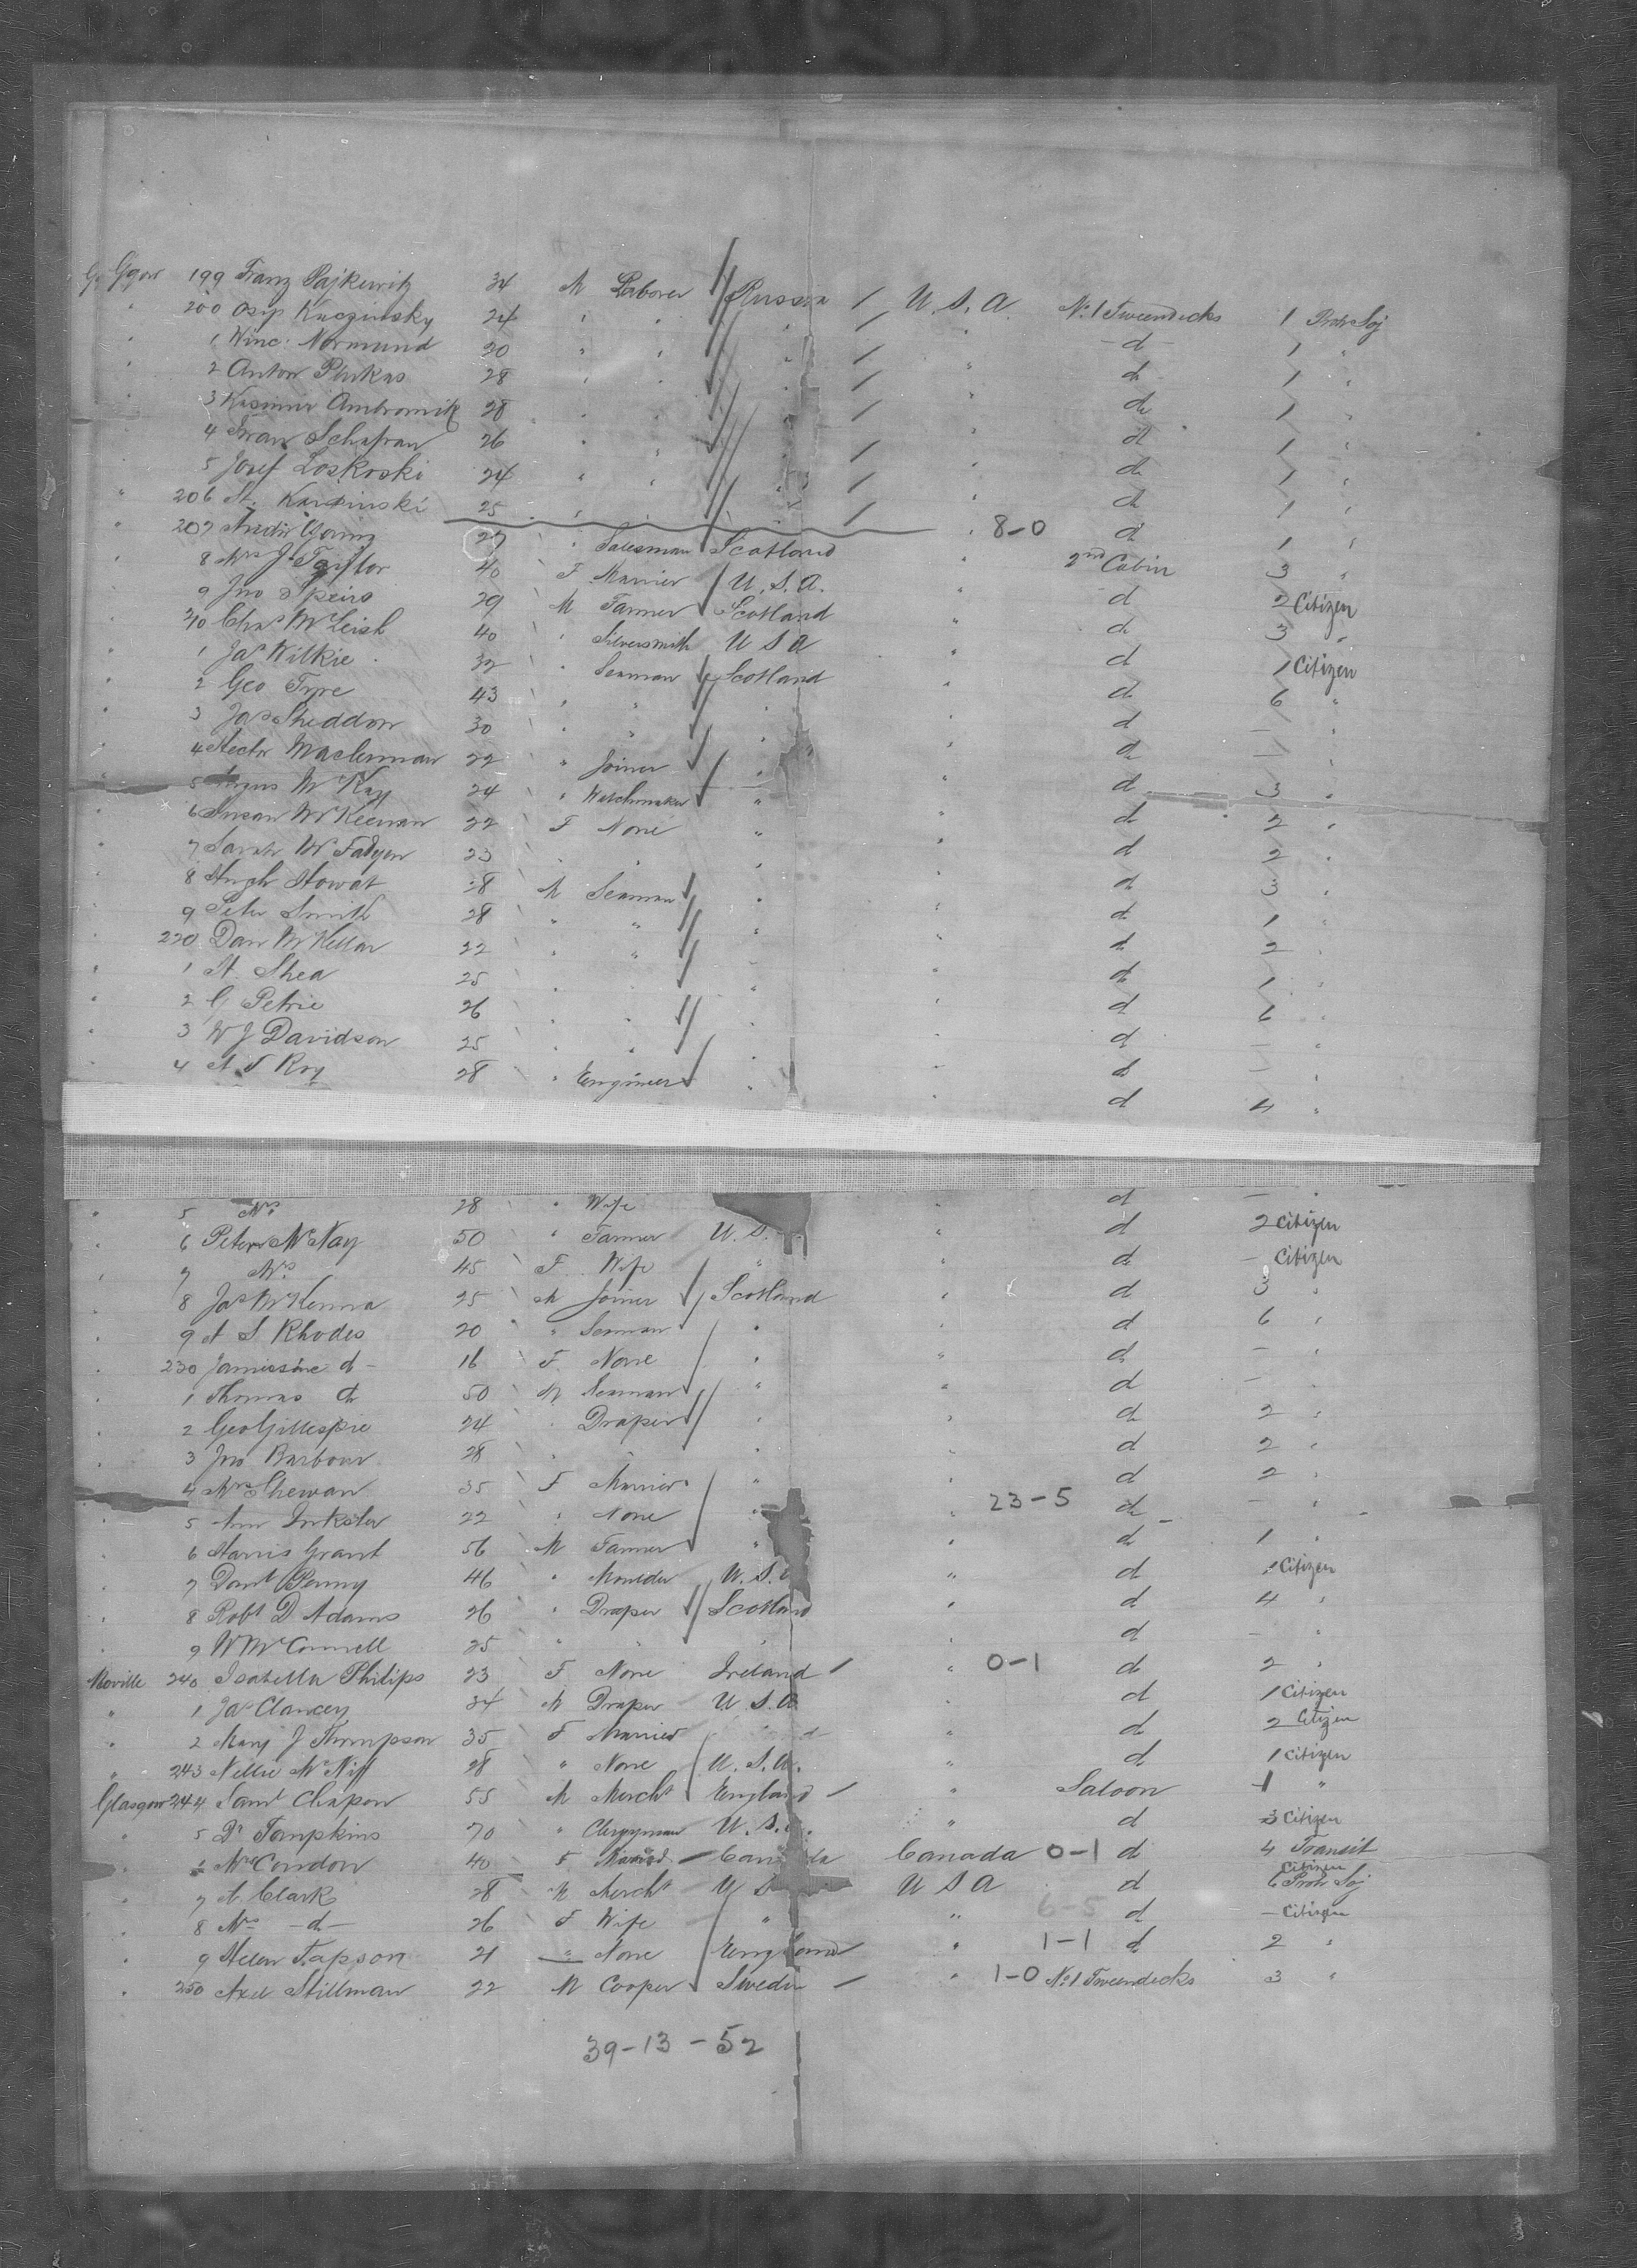 Ggow 199 Franz Pajkewitz 34 M Laborer Russia / U.S.A. No. 1 Tweendecks 1 Protr Soj
" 200 Osip Kuczinsky 24 " " " / " -d- 1 "
" 1 Winc. Normund 20 " " " / " do 1 "
" 2 Anton Plukas 28 " " " / " do 1 "
" 3 Kasimir Ambromik 28 " " " / " d 1 "
" 4 Ivan Schafran 26 " " " / " do 1 "
" 5 Josef Loskoski 24 " " " / " do 1 "
" 206 St. Karpinski 25 " " " / " 8-0 d 1 "
" 207 Andw Young 27 " Salesman Scotland " 2nd Cabin 3 "
" 8 Mrs J. Taylor 40 F Married U.S.A. " d 2 Citizen
" 9 Jno Speirs 29 M Farmer Scotland " do 3 "
" 210 Chas McLeish 40 " Silversmith U S A " d 1 Citizen
" 1 Jas Wilkie 32 " Seaman Scotland " d 6 "
" 2 Geo Tyre 43 " " " " d - "
" 3 Jas Sheddon 30 " " " " do - "
" 4 Hector Maclennan 22 " Joiner " " d 3 "
" 5 Angus McKay 24 " Watchmaker " " do 2 "
" 6 Susan McKeenan 22 F None " " d 2 "
" 7 Sarah McFadyen 23 " " " " do 3 "
" 8 Hugh Howat 28 M Seaman " " d 1 "
" 9 Peter Smith 28 " " " " do 2 "
" 220 Dan McKellar 22 " " " " do 1 "
" 1 A. Shea 25 " " " " d 6 "
" 2 G Petrie 26 " " " " d - "
" 3 W J Davidson 25 " " " " do - "
" 4 A F Roy 28 " Engineer " " d 4 "
" 5 Mrs 28 " Wife " d - "
" 6 Peter McNay 50 " Farmer U.S. " d 2 Citizen
" 7 Mrs 45 F Wife " " do - Citizen
" 8 Jas McKenna 25 M Joiner Scotland " d 3 "
" 9 A S Rhodes 20 " Seaman " " d 6 "
" 230 Jamessine d- 16 F None " " do - "
" 1 Thomas do 50 M Seaman " " d - "
" 2 Geo Gillespie 24 " Draper " " do 2 "
" 3 Jno Barbour 28 " " " " d 2 "
" 4 Mrs Shewan 35 F Married " " d 2 "
" 5 Ann Inkster 22 " None " " 23-5 do - "
" 6 Harris Grant 56 M Farmer " " d 1 "
" 7 Danl Penny 46 " Moulder U.S. " d 1 Citizen
" 8 Robt D Adams 26 " Draper Scotland " d 4 "
" 9 W McConnell 25 " " " " d - "
Moville 240 Isabella Philips 23 F None Ireland / " 0-1 d 2 "
" 1 Jas Clancey 34 M Draper U.S.A. " d 1 Citizen
" 2 Mary J Thompson 35 F Married " d 2 Citizen
" 243 Nellie McNiff 28 " None U.S.A. " d 1 Citizen
Glasgow 244 Saml Chapon 55 M Mercht England / " Saloon 1 "
" 5 Dr Tompkins 70 " Clergyman U.S. " d 3 Citizen
6 Mrs Condon 40 F Married Canada Canada 0-1 d 4 Transit
" 7 A. Clark 28 M Mercht U S U S A d 6 Protr Soj Citizen
" 8 Mrs -d- 26 F Wife " " 6-5 d - Citizen
" 9 Helen Tapson 21 " None England " 1-1 d 2 "
" 250 Axel Stillman 22 M Cooper Sweden / " 1-0 No. 1 Tweendecks 3 "
39-13-52